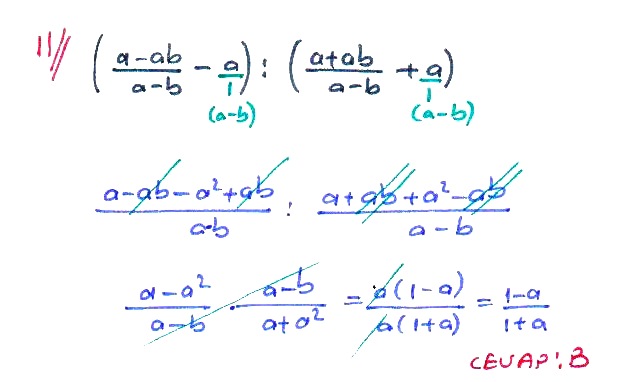 11// ( (a-ab)/(a-b) - a/1 ) : ( (a+ab)/(a-b) + a/1 )
(a-b) (a-b)
(a-ab-a²+ab)/(a-b) : (a+ab+a²-ab)/(a-b)
(a-a²)/(a-b) · (a-b)/(a+a²) = a(1-a)/a(1+a) = (1-a)/(1+a)
CEVAP: B